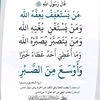 قَالَ رَسُولُ اللهِ
مَنْ يَسْتَعْفِفْ يُعِفَّهُ الله
وَمَنْ يَسْتَغْنِ يُغْنِهِ الله
وَمَنْ يَتَصَبَّرْ يُصَبِّرْهُ الله
وَمَا أُعْطِيَ أَحَدٌ عَطَاءً خَيْرًا
وَأَوْسَعَ مِنَ الصَّبْرِ